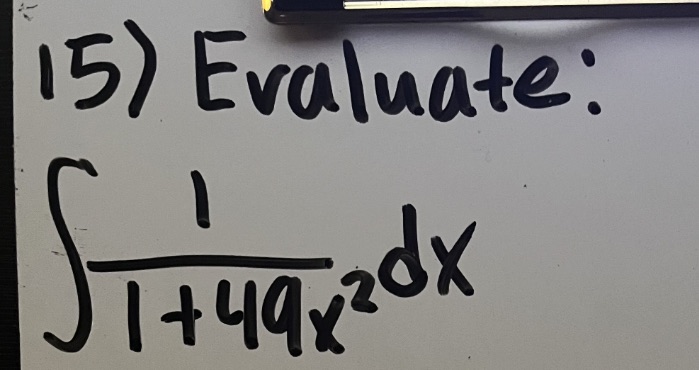 15) Evaluate:
∫ 1/(1+49x²) dx